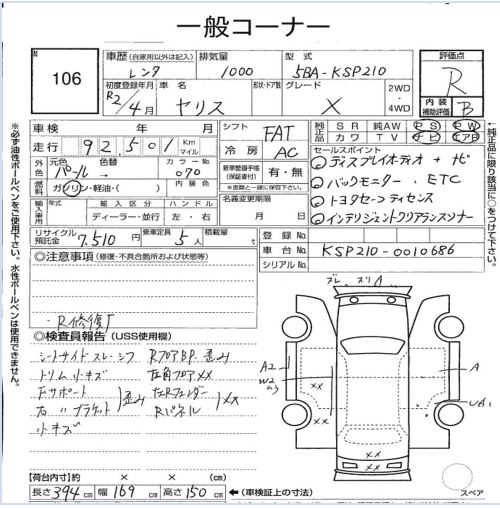 一般コーナー
N
106
車歴 (自家用以外は記入)
レンタ
排気量
1000
型式
5BA-KSP210
評価点
R
内装
補助評価
B
初度登録年月
R2/4月
車名
ヤリス
形状・ドア数
グレード
X
2WD
4WD
車検 年 月
走行 92,501 Km マイル
シフト FAT
冷房 AC
純正品 SR 純AW PS PW
カワ TV ナビ エアB
外色 元色 パール 色替 カラーNo 070
燃料 ガソリン・軽油・( ) 内装色
新車整備手帳
(保証書付)
有・無
※書類と一緒に保管下さい。
セールスポイント
ディスプレイオーディオ+ナビ
バックモニター、ETC
トヨタセーフティセンス
インテリジェントクリアランスソナー
輸入車用 年式 輸入区分 ハンドル
ディーラー・並行 左・右
名義変更期限
月 日
リサイクル預託金 7,510円
乗車定員 5人
積載量 t
登録No
車台No KSP210-0010686
シリアルNo
◎注意事項 (修復・不具合箇所および状態等)
・R修復アリ
◎検査員報告 (USS使用欄)
シートサイドスレ・シワ
トリム小キズ
Fサポート
右〃ブラケット
歪み
小キズ
RフロアBP歪み
左角フロアメメ
左Rフェンダー
Rパネル
XX
スレ スリA
A2
W2
ムラ
XX
A
UA1
XX
XX
スペア
【荷台内寸】 × × (cm)
長さ 394 cm 幅 169 cm 高さ 150 cm
←(車検証上の寸法)
※必ず油性ボールペンをご使用下さい。水性ボールペンは使用できません。
←純正品に限り該当に○をつけて下さい。